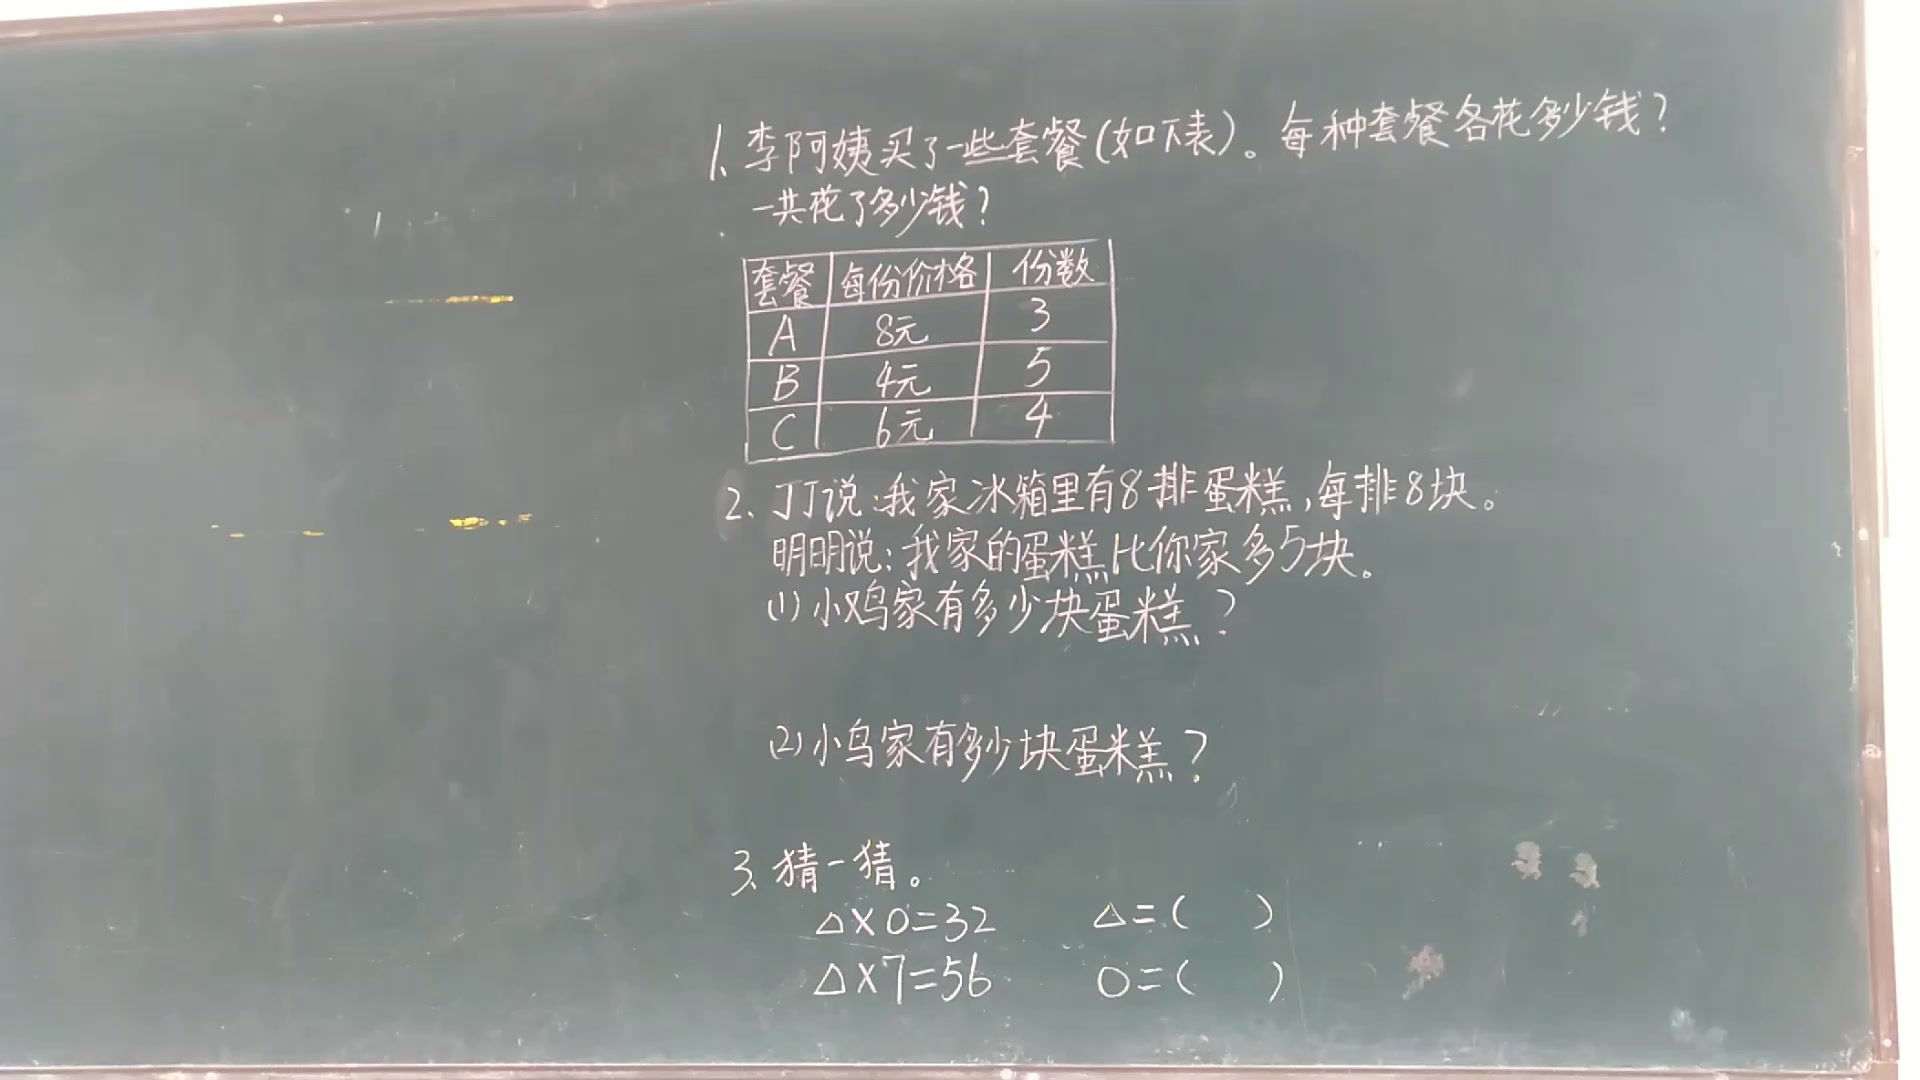 1、李阿姨买了一些套餐(如下表)。每种套餐各花多少钱?
一共花了多少钱?
套餐 每份价格 份数
A 8元 3
B 4元 5
C 6元 4
2、丁丁说:我家冰箱里有8排蛋糕,每排8块。
明明说:我家的蛋糕比你家多5块。
(1)小鸡家有多少块蛋糕?
(2)小鸟家有多少块蛋糕?
3、猜一猜。
△×○=32 △=( )
△×7=56 ○=( )